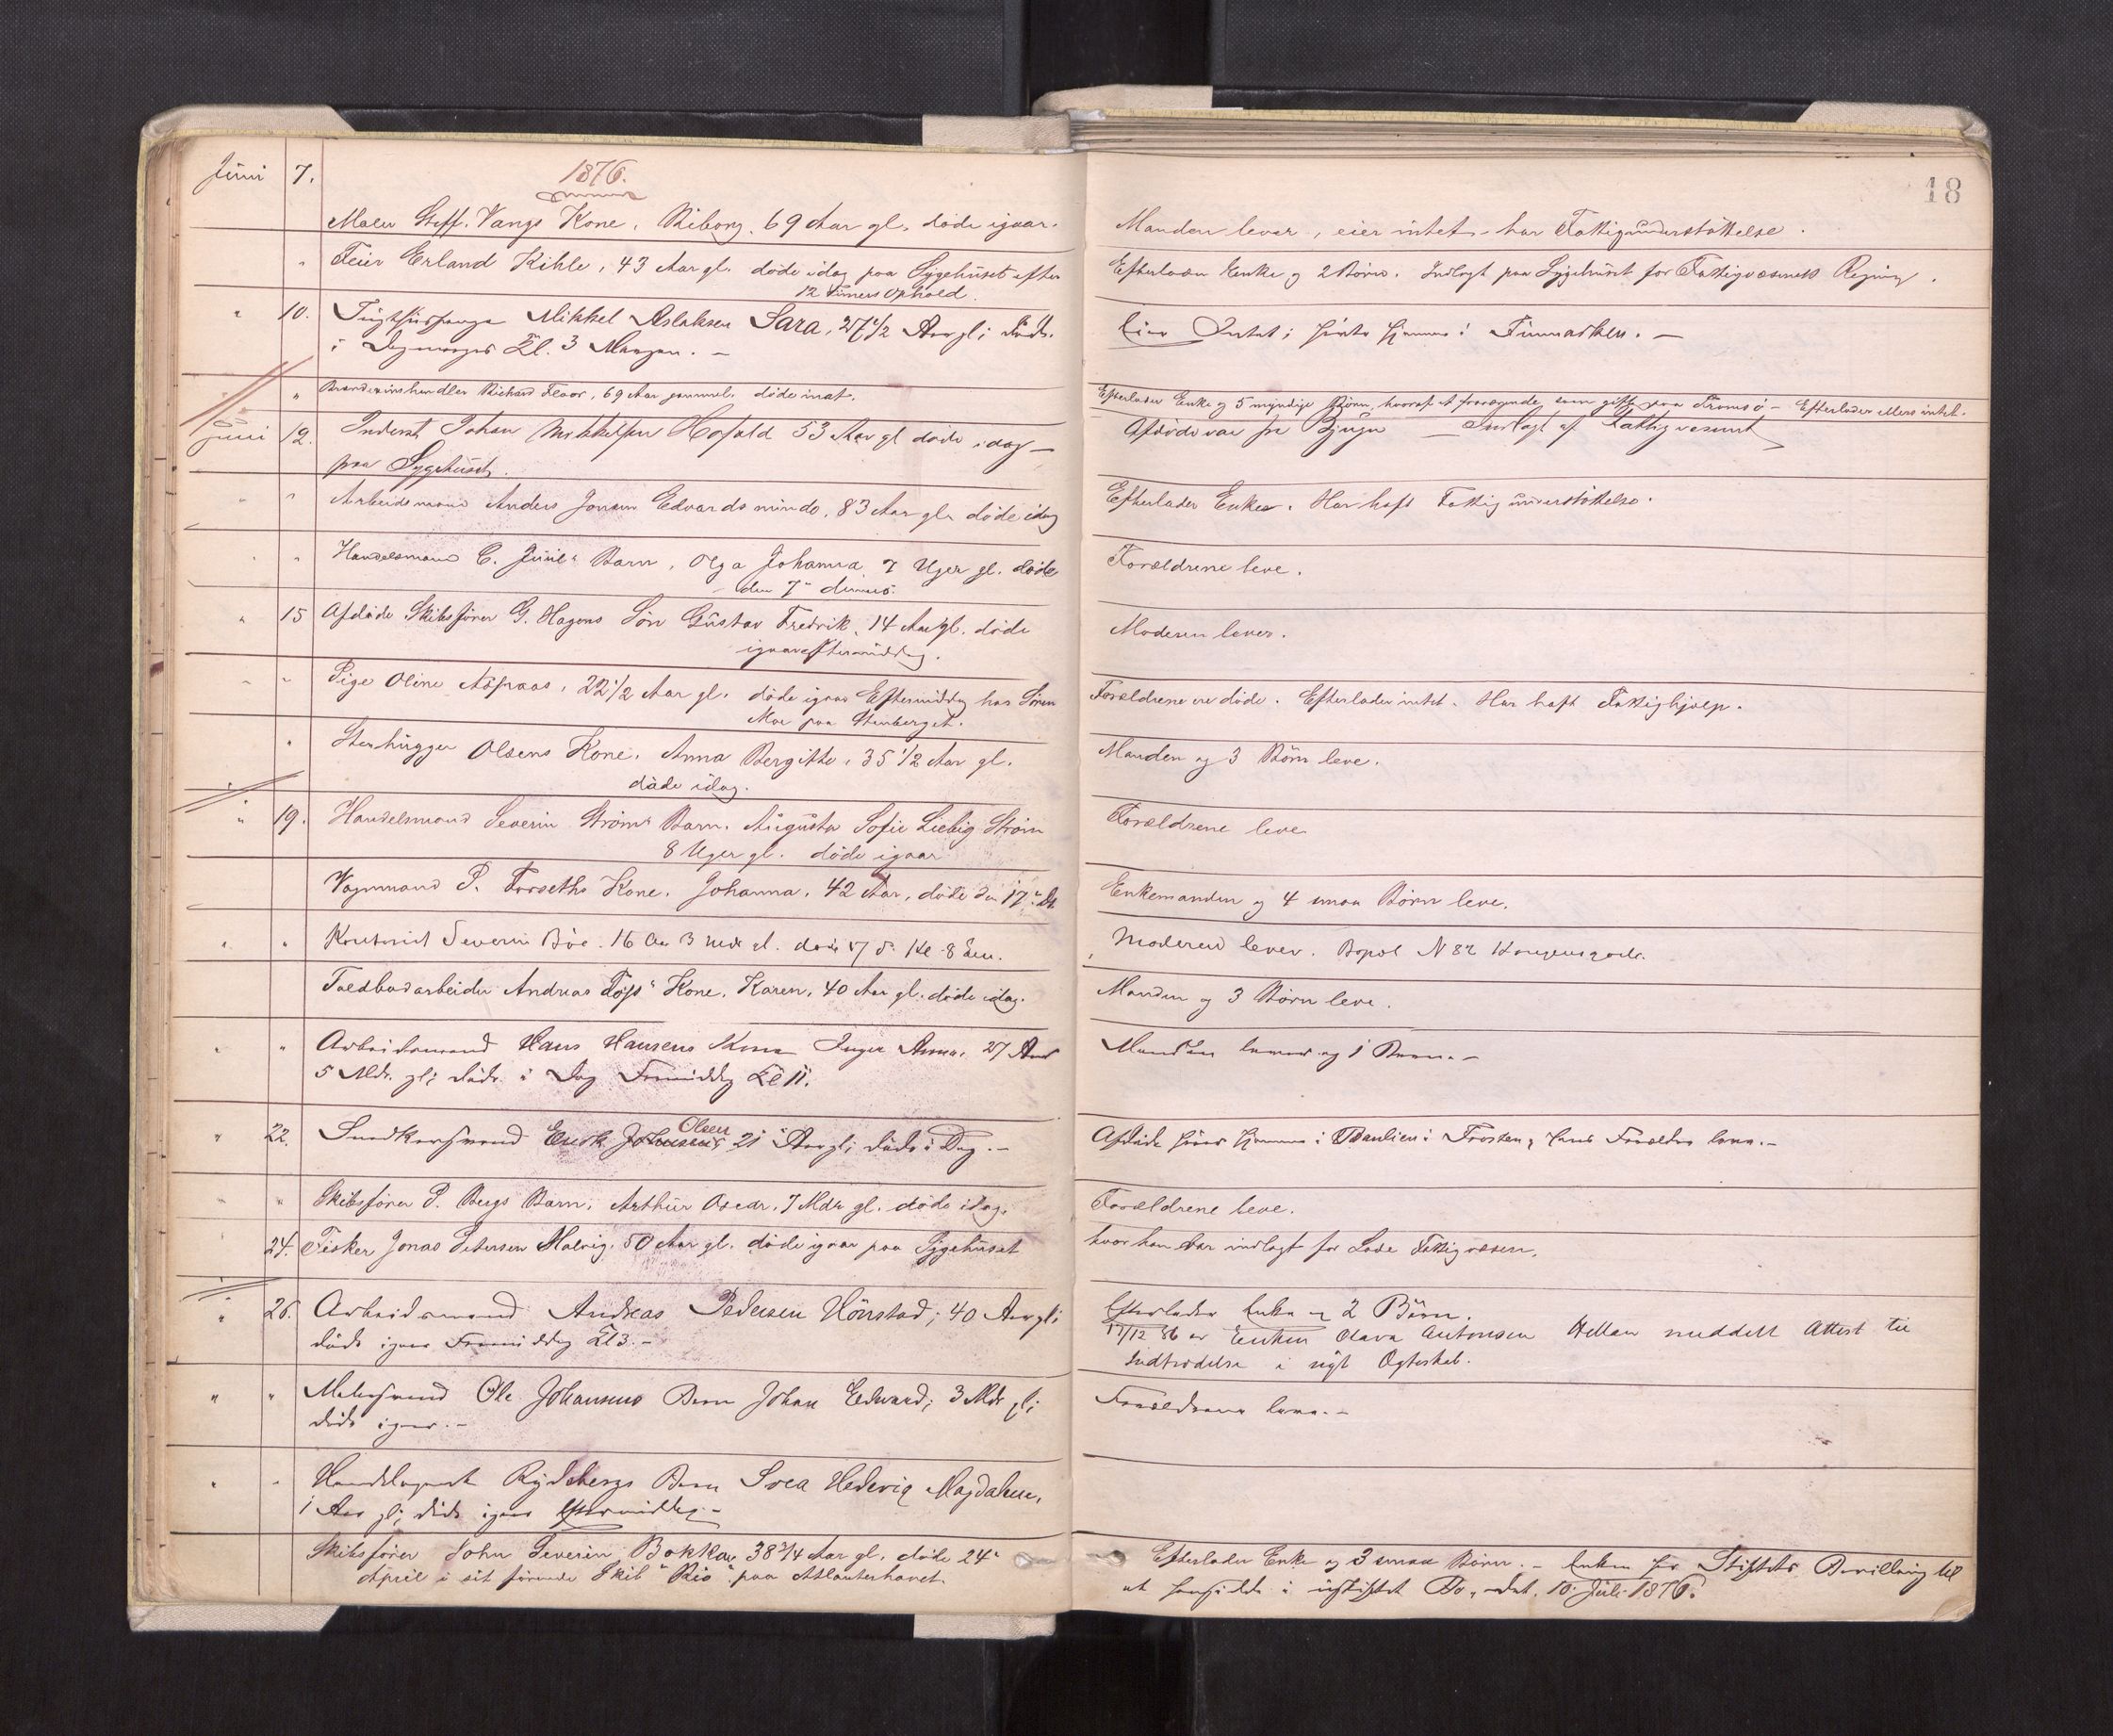 18
Juni 7. 1876.
Maler Steff. Vangs Kone, Viborg, 69 Aar gl. døde igaar. Manden lever, eier intet - har Fattigunderstøttelse.
" Feier Erland Kihle, 43 Aar gl. døde idag paa Sygehuset efter Efterlader Enke og 2 Børn. Indlagt paa Sygehuset for Fattigvæsenets Regning.
12 Timers Ophold.
" 10. Tugthusfange Mikkel Aslaksen Sara, 27 1/2 Aar gl; døde Eier Intet; hørte hjemme i Finmarken. —
i Dag morges Kl. 3 Morgen. —
" Brændevinshandler Richard Floor, 69 Aar gammel. døde inat. Efterlader Enke og 5 myndige Børn, hvoraf et fraværende, som gift paa Tromsø - Efterlader ellers intet.
Juni 12. Inderst Johan Mikkelsen Hofald 53 Aar gl døde idag — Afdøde var fra Bjugn — Indlagt af Fattigvæsenet
paa Sygehuset.
" " Arbeidsmand Anders Jonsen Edvardsminde, 83 Aar gl. døde idag Efterlader Enke. Har haft Fattigunderstøttelse.
" " Handelsmand C. Juul's Barn, Olga Johanna 7 Uger gl. døde Forældrene leve.
den 7de dennes.
" 15 Afdøde Skibsfører G. Hagens Søn Gustav Fredrik, 14 Aar gl. døde Moderen lever.
igaareftermiddag.
" " Pige Oline Aspaas, 22 1/2 Aar gl. døde igaar Eftermiddag hos Søren Forældrene ere døde. Efterlader intet. Har haft Fattighjælp.
Moe paa Stenberget.
" Stenhugger Olsens Kone, Anna Bergitte, 35 1/2 Aar gl. Manden og 3 Børn leve.
døde idag.
" 19. Handelsmand Severin Strøm's Barn, Augusta Sofie Liebig Strøm Forældrene leve
8 Uger gl. døde igaar
Vognmand P. Forseths Kone, Johanna, 42 Aar, døde den 17de ds Enkemanden og 4 smaa Børn leve.
" " Severin Böe. 16 Aar 3 Mdr gl. døde 17 d. Kl 8 Em. Moderen lever. Bopæl N 82 Kongensgade.
Toldbodarbeider Andreas Foss' Kone, Karen, 40 Aar gl. døde idag. Manden og 3 Børn leve.
" " Arbeidsmand Hans Hansens Kone Inger Anna, 27 Aar Manden lever og 1 Barn. -
5 Mdr. gl; døde i Dag Formiddag Kl 11.
" 22. Snedkersvend Erik Johnsens Olsen 21 Aar gl; døde i Dag. - Afdøde hører hjemme i Paulien i Frosten, hans Forældre leve. -
" " Skibsfører P. Bergs Barn, Arthur Oscar, 7 Mdr gl. døde idag. Forældrene leve.
24. Fisker Jonas Petersen Malvig, 50 Aar gl. døde igaar paa Sygehuset hvor han var indlagt for Lade Fattigvæsen.
" 26. Arbeidsmand Andreas Pedersen Hönstad; 40 Aar gl; Efterlader Enke og 2 Börn.
døde igaar Formiddag Kl 3. - 17/12 86 er Enken Olava Antonsen Hellan meddelt Attest til
Indtrædelse i nyt Ægteskab.
" " Malersvend Ole Johansens Barn Johan Edvard; 3 Mdr gl; Forældrene leve. -
døde igaar. -
" " Handelsagent Rydebergs Barn Svea Hedevig Magdalene,
1 Aar gl; døde igaar Eftermiddag. -
Skibsfører John Severin Bakka, 38 3/4 Aar gl. døde 24de Efterlader Enke og 3 smaa Børn. - Enken har Stiftets Bevilling til
April i sit førende Skib "Rio" paa Atlanterhavet. at hensidde i uskiftet Bo, dat. 10. Juli 1876.